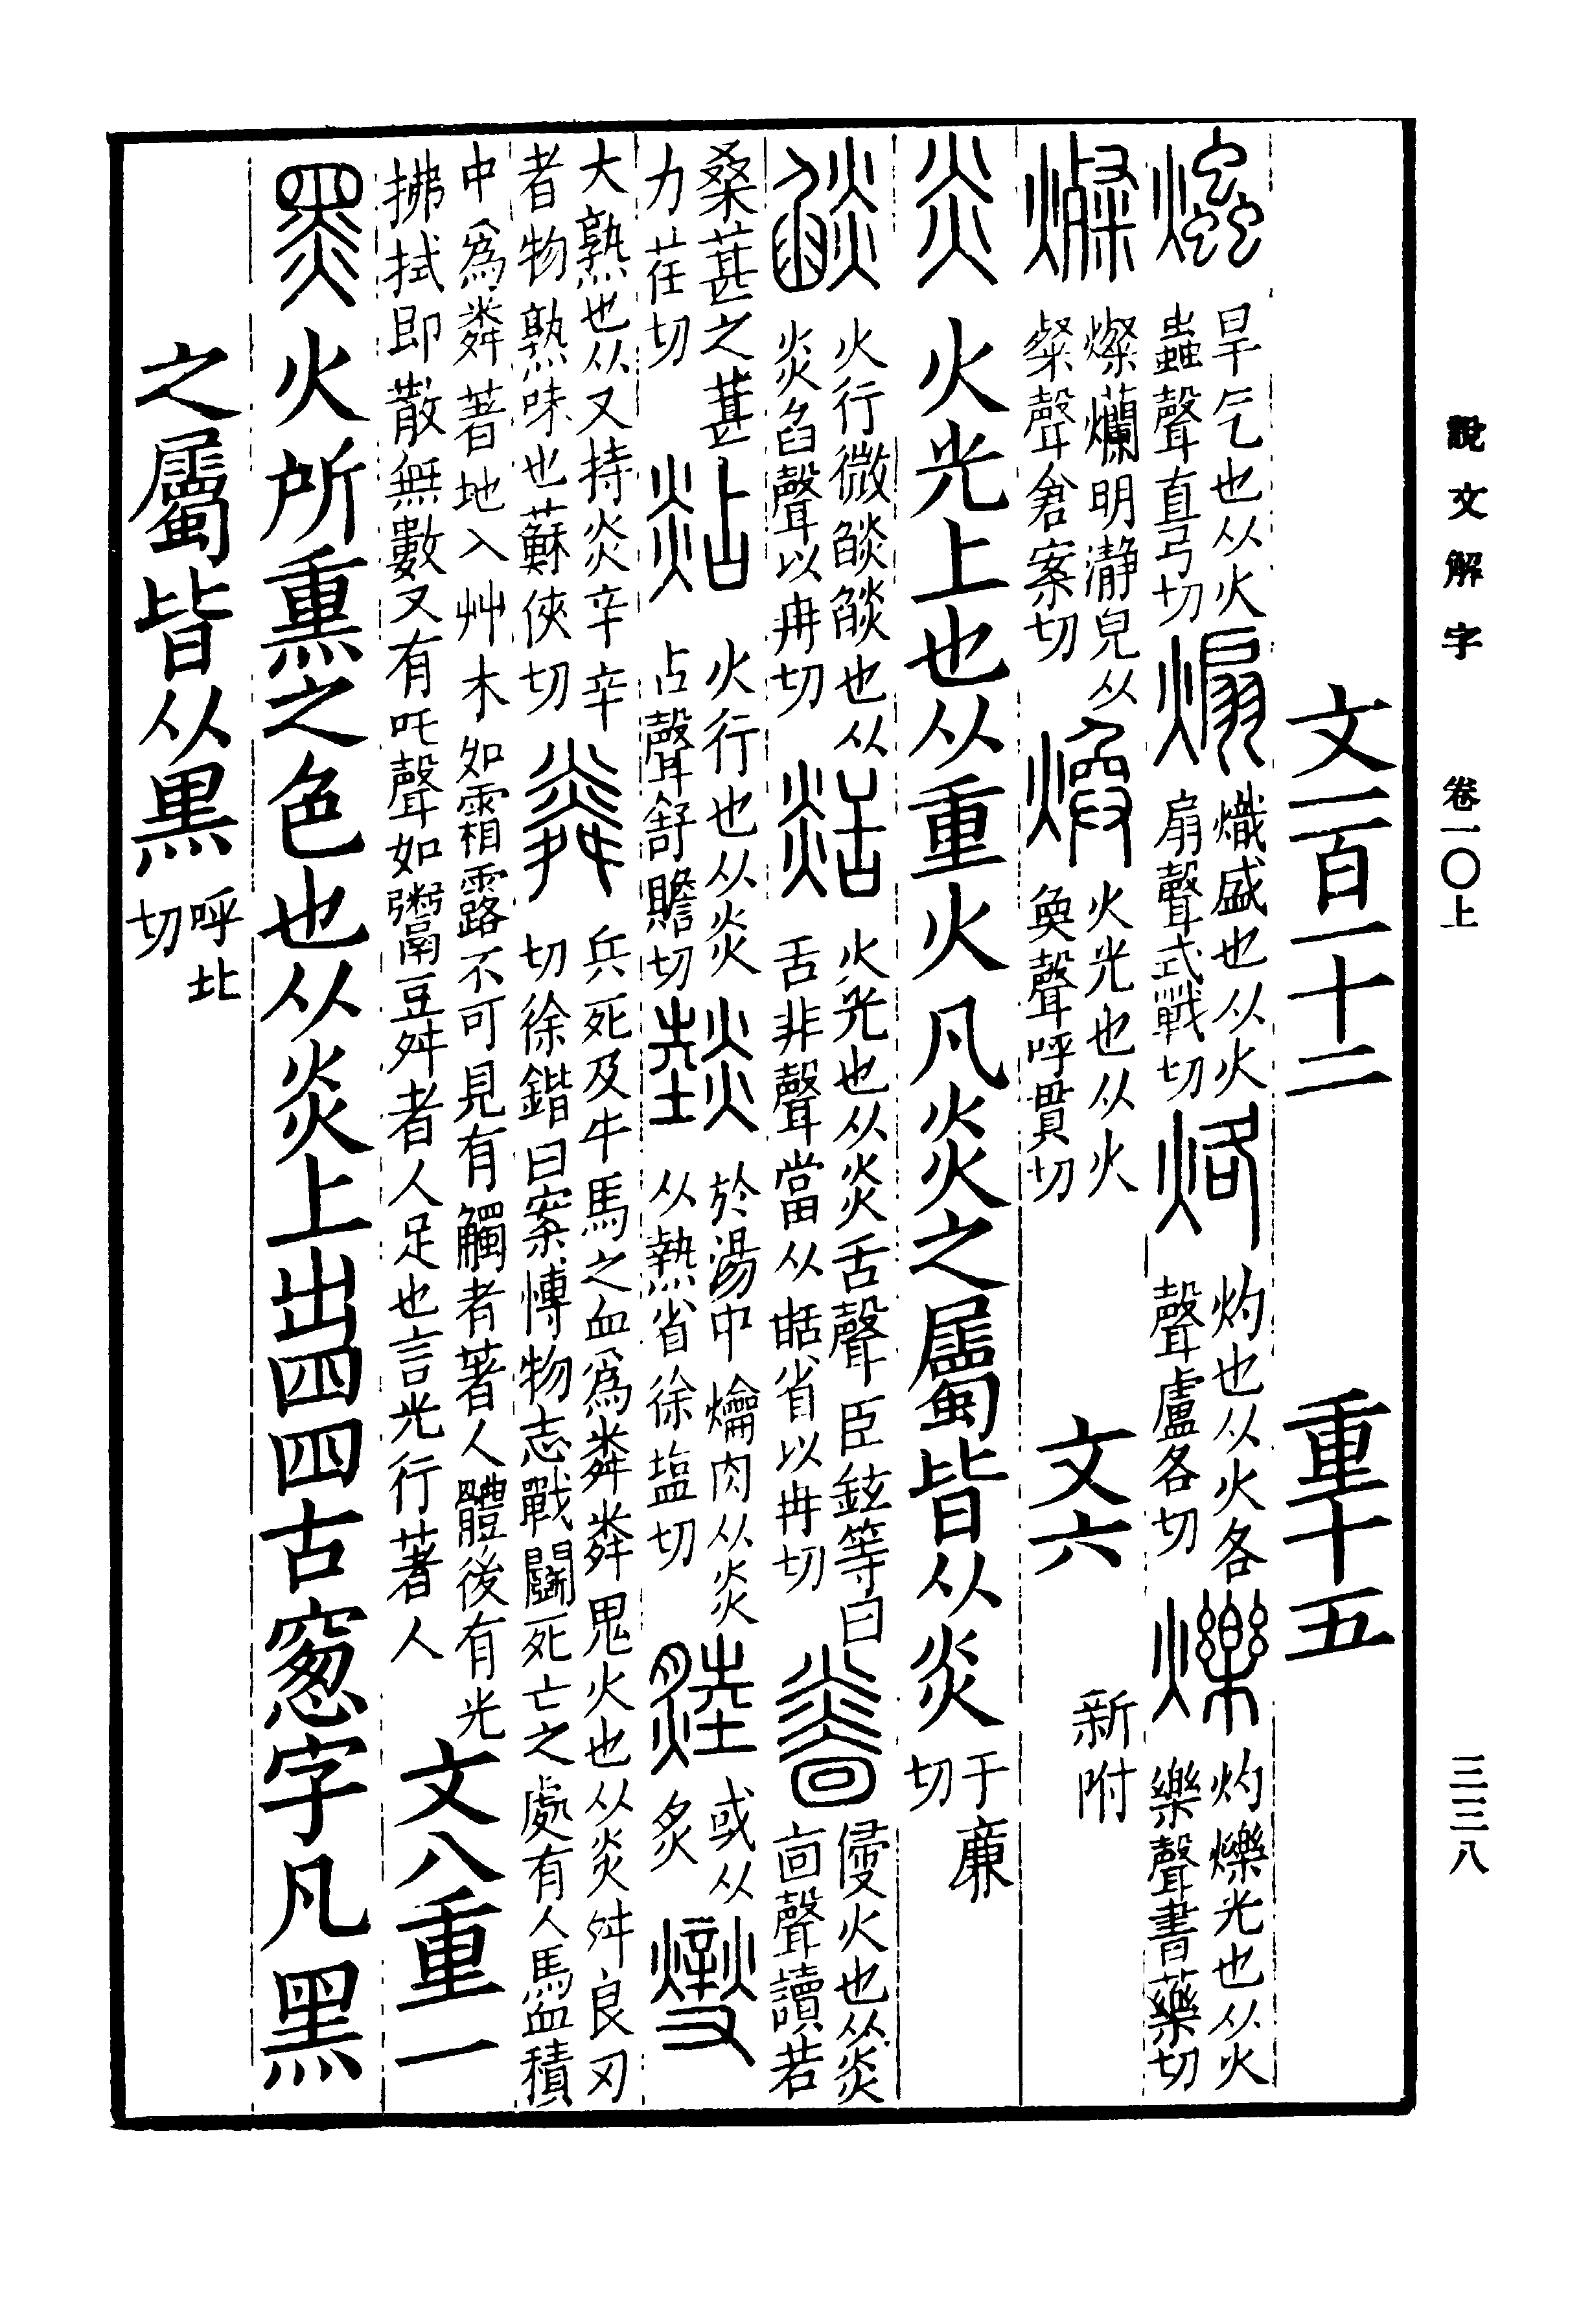 說文解字 卷一〇上 三三八
文一百一十二 重十五
爞 旱气也从火蟲聲直弓切 煽 熾盛也从火扇聲式戰切 烙 灼也从火各聲盧各切 爍 灼爍光也从火樂聲書藥切
燦 燦爛明瀞皃从粲聲倉案切 煥 火光也从火奐聲呼貫切 文六 新附
炎 火光上也从重火凡炎之屬皆从炎 于廉切
燄 火行微燄燄也从炎臽聲以冉切 火光也从炎舌聲臣鉉等曰舌非聲當从甛省以冉切 侵火也从炎㐭聲讀若
桑葚之葚力荏切 煔 火行也从炎占聲舒贍切 燅 於湯中爚肉从炎从熱省徐塩切 或从炙 燮
大熟也从又持炎辛辛者物熟味也蘇俠切 粦 兵死及牛馬之血爲粦粦鬼火也从炎舛良刃切徐鍇曰案博物志戰鬭死亡之處有人馬血積
中爲粦著地入艸木如霜露不可見有觸者著人體後有光拂拭即散無數又有吒聲如鬻豆舛者人足也言光行著人 文八重一
黑 火所熏之色也从炎上出四四古窻字凡黑
之屬皆从黑 呼北切